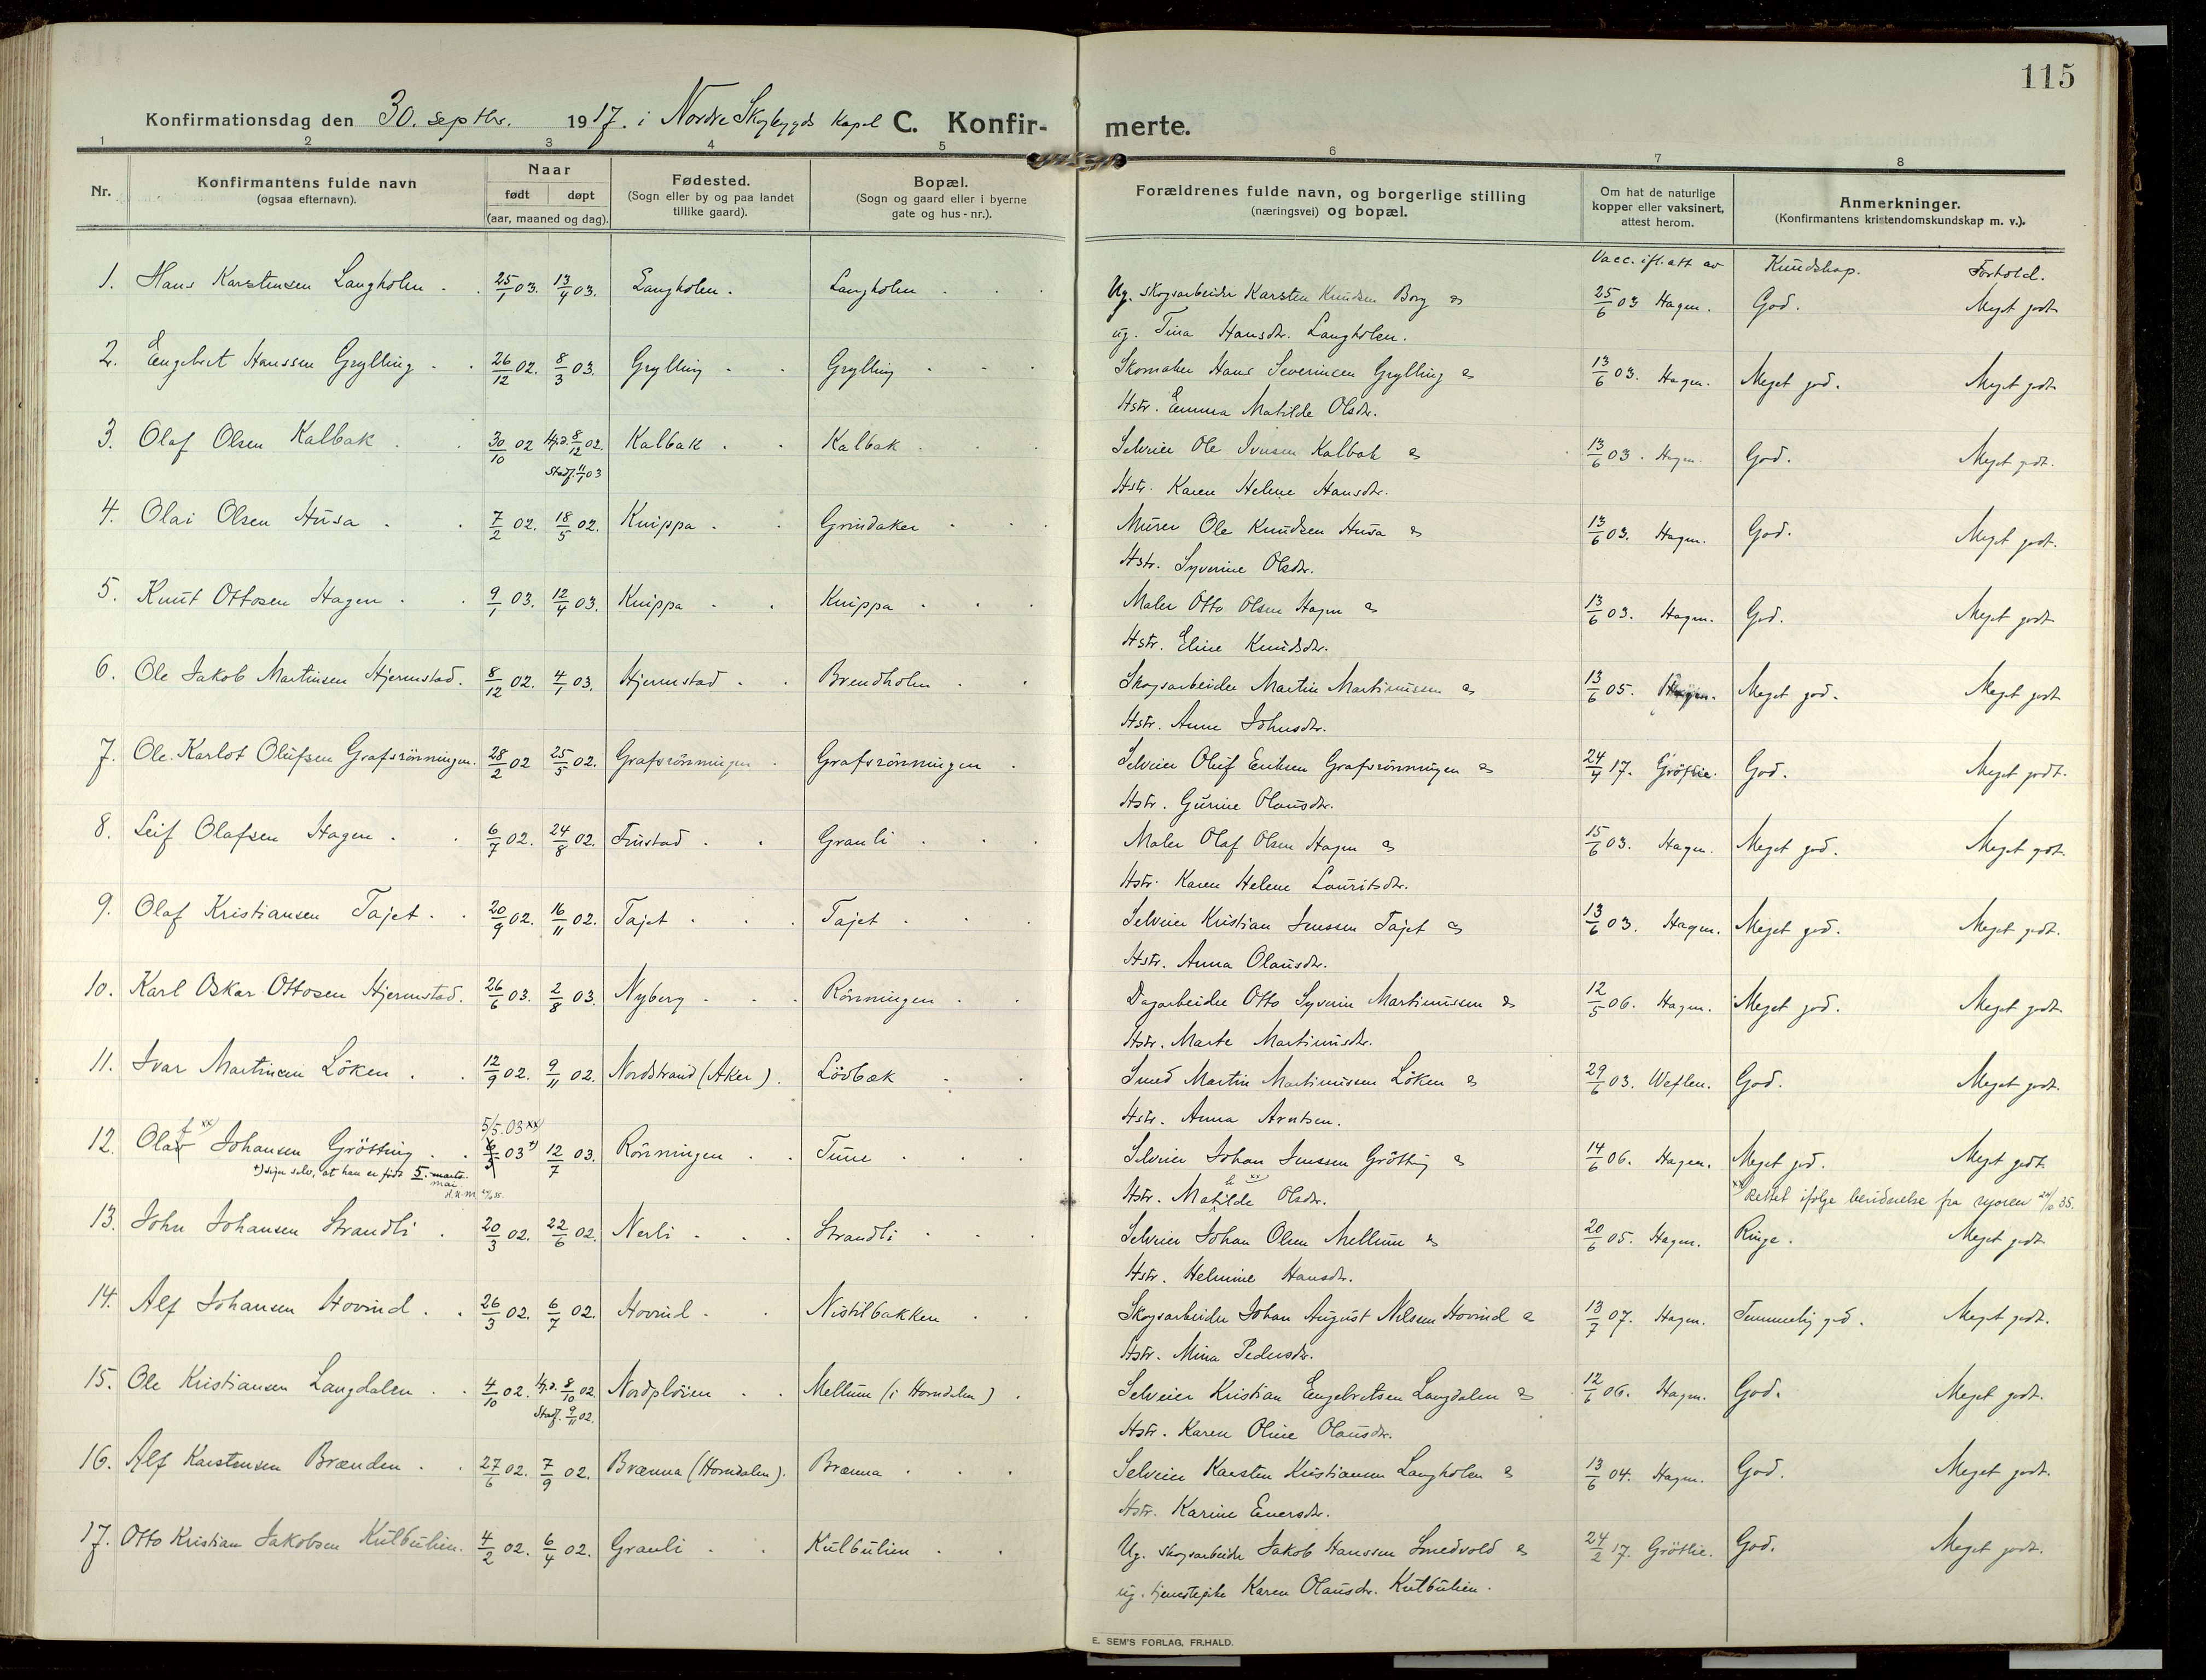 115
Konfirmationsdag den 30. septbr. 1917. i Nordre Skogbygds Kapel C. Konfir- merte.
1 2 3 4 5 6 7 8
Nr.
Konfirmantens fulde navn
(ogsaa efternavn).
Naar
født døpt
(aar, maaned og dag).
Fødested.
(Sogn eller by og paa landet
tillike gaard).
Bopæl.
(Sogn og gaard eller i byerne
gate og hus-nr.).
Forældrenes fulde navn, og borgerlige stilling
(næringsvei) og bopæl.
Om hat de naturlige
kopper eller vaksinert,
attest herom.
Anmerkninger.
(Konfirmantens kristendomskundskap m. v.).
Vacc. ifl. att av Kundskap. Forhold.
1. Hans Karstensen Langholen 25/1 03. 13/4 03. Langholen. Langholen Ug. skogsarbeider Karsten Knudsen Borg & 25/6 03 Hagen. God. Meget godt
ug. Tina Hansdtr. Langholen.
2. Engebret Hanssen Grylling 26/12 02. 8/3 03. Grylling Grylling Skomaker Hans Severinsen Grylling & 13/6 03. Hagen. Meget god. Meget godt
Hstr. Emma Matilde Olsdtr.
3. Olaf Olsen Kalbak 30/10 02 Hjd. 8/12 02. Kalbak Kalbak Selveier Ole Iversen Kalbak & 13/6 03. Hagen. God. Meget godt.
Stadf. 11/1 03
Hstr. Karen Helene Hansdtr.
4. Olai Olsen Husa 7/2 02. 18/5 02. Knippa Grindaker Murer Ole Knudsen Husa & 13/6 03. Hagen. God. Meget godt.
Hstr. Syverine Olsdtr.
5. Knut Ottosen Hagen 9/1 03. 12/4 03. Knippa Knippa Maler Otto Olsen Hagen & 13/6 03. Hagen. God. Meget godt
Hstr. Eline Knudsdtr.
6. Ole Jakob Martinsen Hjermstad. 8/12 02. 4/1 03. Hjermstad Brendholen Skogsarbeider Martin Martinussen & 13/6 05. Hagen. Meget god. Meget godt
Hstr. Anne Johnsdtr.
7. Ole Karlot Olufsen Grafsrönningen. 28/2 02 25/5 02. Grafsrönningen Grafsrönningen Selveier Oluf Eriksen Grafsrönningen & 24/4 17. Gröttie. God. Meget godt.
Hstr. Gurine Olausdtr.
8. Leif Olafsen Hagen 6/7 02. 24/8 02. Frustad Granli Maler Olaf Olsen Hagen & 15/6 03. Hagen. Meget god. Meget godt.
Hstr. Karen Helene Lauritsdtr.
9. Olaf Kristiansen Tajet 20/9 02. 16/11 02. Tajet Tajet Selveier Kristian Jenssen Tajet & 13/6 03. Hagen. Meget god. Meget godt.
Hstr. Anna Olausdtr.
10. Karl Oskar Ottosen Hjermstad. 26/6 03. 2/8 03. Nyberg Rönningen Dagarbeider Otto Syverin Martinussen & 12/5 06. Hagen. Meget god. Meget godt
Hstr. Marte Martinusdtr.
11. Ivar Martinsen Löken 12/9 02. 9/11 02. Nordstrand (Aker). Lövbæk Smed Martin Martinussen Löken & 29/6 03. Weflen. God. Meget godt.
Hstr. Anna Arntsen.
5/5.03 xx)
12. Olav f xx) Johansen Grötting 6/3 03 +) 12/7 03. Rönningen Tune Selveier Johan Jenssen Grötting & 14/6 06. Hagen. Meget god. Meget godt
+) siger selv, at han er født 5. marts. mai
Hstr. Matilde Olsdtr. xx) Rettet ifølge bevidnelse fra 35.
13. John Johansen Strandli 20/3 02. 22/6 02. Nerli Strandli Selveier Johan Olsen Mellum & 20/6 05. Hagen. Ringe. Meget godt
Hstr. Helmine Hansdtr.
14. Alf Johansen Hovind 26/3 02. 6/7 02. Hovind Nistilbakken Skogsarbeider Johan August Nilsen Hovind & 13/7 07. Hagen. Temmelig god. Meget godt.
Hstr. Mina Pedersdtr.
15. Ole Kristiansen Langdalen 4/10 02. Hjd. 8/10 02 Nordpløien Mellum (i Horndalen). Selveier Kristian Engebretsen Langdalen & 12/6 06. Hagen. God. Meget godt.
Stadf. 9/11 02.
Hstr. Karen Oline Olausdtr.
16. Alf Karstensen Brænden 27/6 02. 7/9 02. Brænna (Horndalen). Brænna Selveier Karsten Kristiansen Langholen & 13/6 04. Hagen. God. Meget godt.
Hstr. Karine Eversdtr.
17. Otto Kristian Jakobsen Kulbulien. 4/2 02. 6/4 02. Granli Kulbulien Ug. skogsarbeider Jakob Hanssen Smedvold & 24/2 17. Gröttie. God. Meget godt.
ug. tjenestepike Karen Olausdtr. Kulbulien.
E. SEM'S FORLAG, FR.HALD.